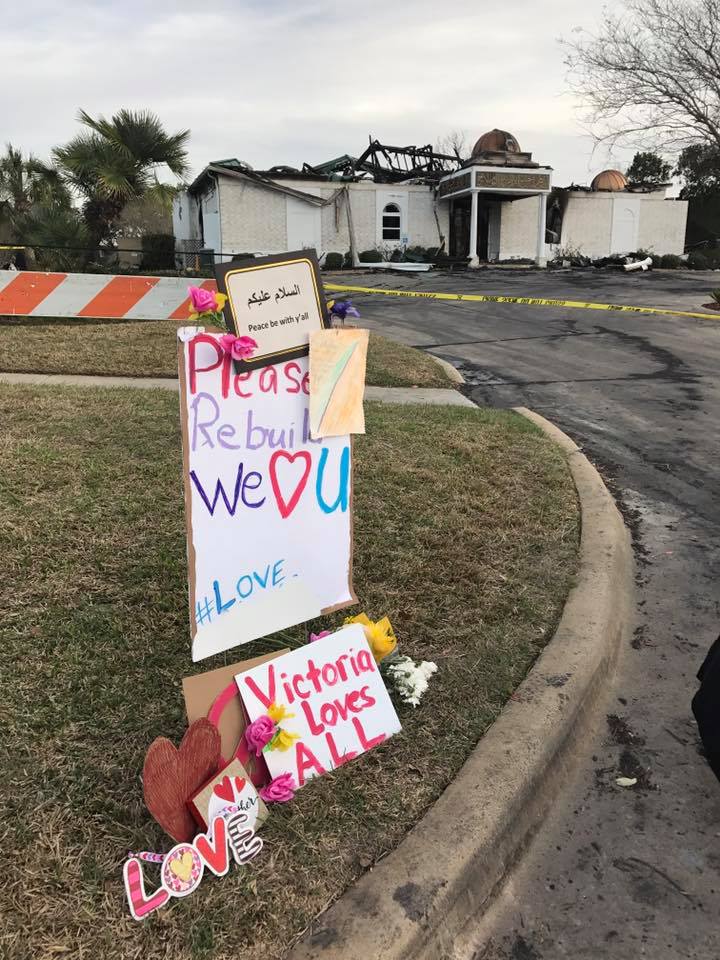 السلام عليكم
Peace be with y'all
Please
Rebuil
We U
#LOVE.
Victoria
Loves
ALL
LOVE